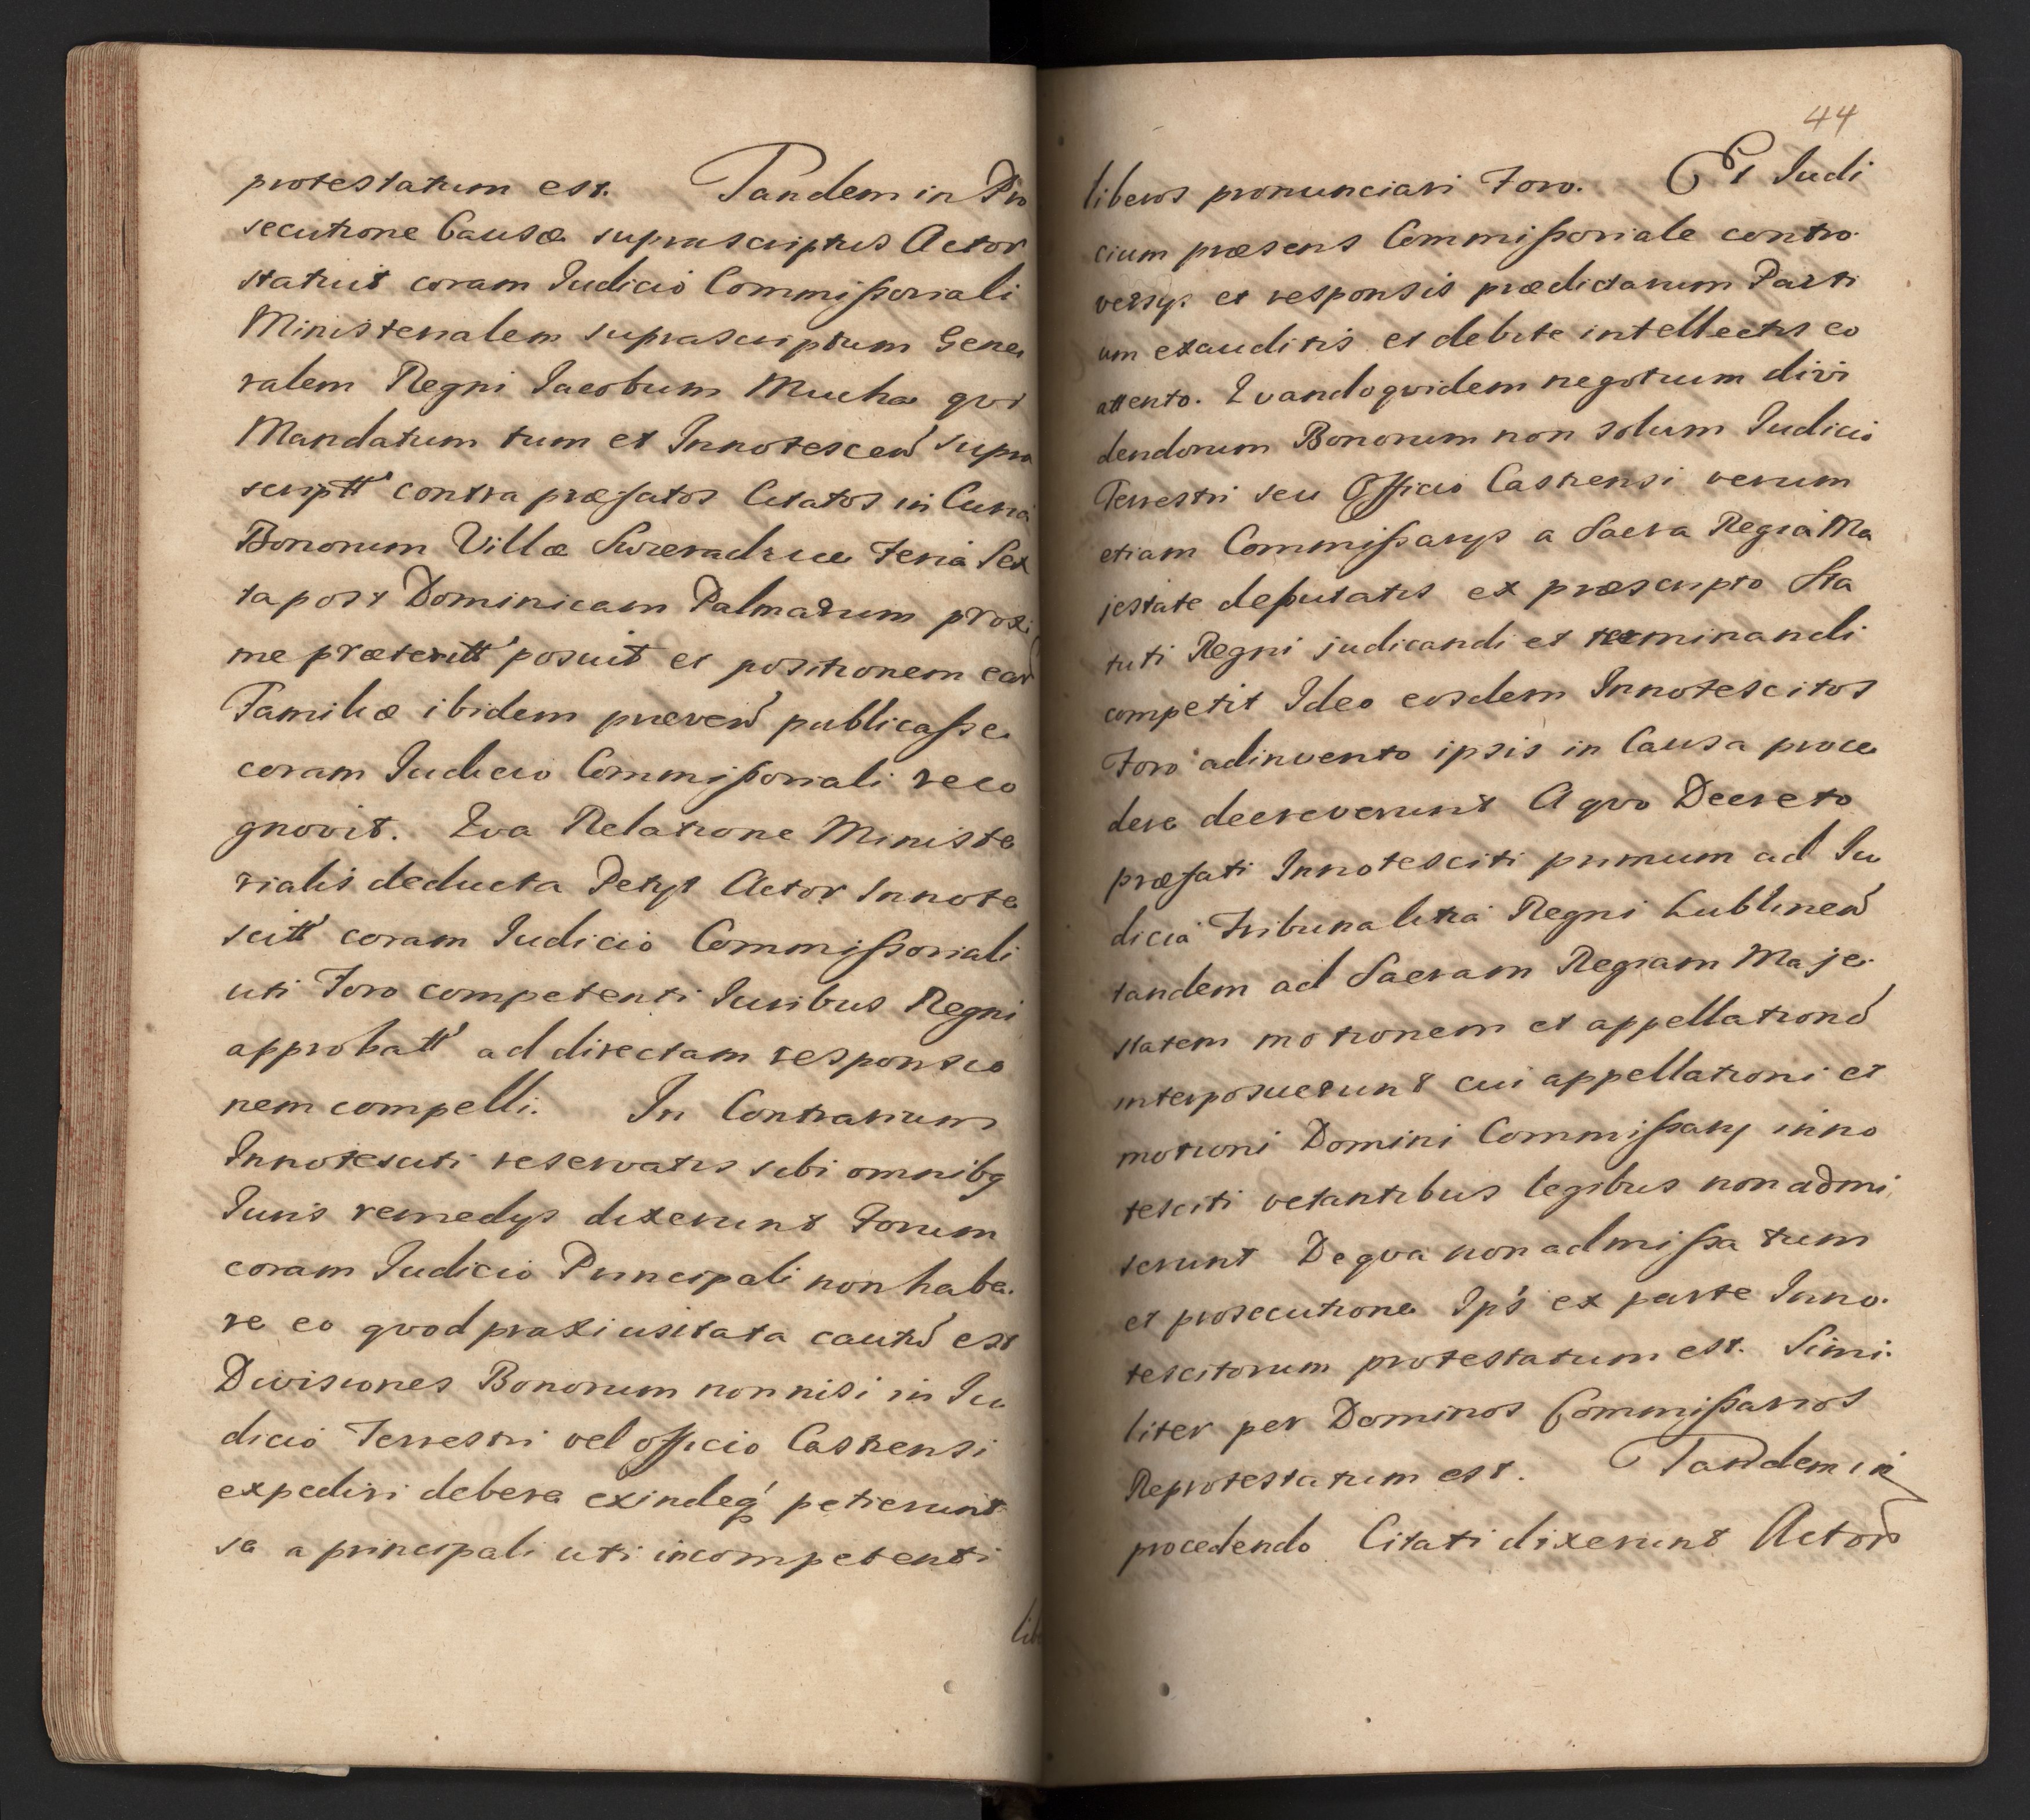 protestatum est. Tandem in Pro
secutione Causæ suprascriptus Actor
statuit coram Iudicio Commissoriali
Ministerialem suprascriptum Gene
ralem Regni Iacobum Mucha qvi
Mandatum tum et Innotescen supra
scriptt contra præfatos Citatos in Curia
Bononum Villæ Feria Sex
ta post Dominicam Palmarum proxi
me præteritt posuit et positionem ear
Familiæ ibidem præven publicasse
coram Iudicio Commissoriali reco
gnovit. Qva Relatione Ministe
rialis deducta Petyt Actor Innote
scitt coram Iudicio Commissoriali
uti Foro competenti Iuribus Regni
approbatt ad directam responsio
nem compelli. In Contrarium
Innotesciti reservatis sibi omnibq
Iuris remedys dixerunt Forum
coram Iudicio Principali non habe
re eo qvod praxi usitata caut est
Divisiones Bonorum nonnisi in Iu
dicio Terrestri vel officio Castrensi
expediri debere exindeq petierunt
se a principali uti incompetenti
lib
44
liberos pronunciari Foro. Et Iudi
cium præsens Commissoriale contro
versys et responsis prædictarum Parti
um exauditis et debite intellectis eo
attento. Qvandoqvidem negotium divi
dendorum Bonorum non solum Iudicio
Terrestri seu Officio Castrensi verum
etiam Commissarys a Sacra Regia Ma
jestate deputatis ex præscripto Sta
tuti Regni judicandi et terminandi
competit Ideo eosdem Innotescitos
Foro adinvento ipsis in Causa proce
dere decreverunt A qvo Decreto
præfati Innotesciti primum ad Iu
dicia Tribunalitia Regni Lublinen
tandem ad Sacram Regiam Maje
statem motionem et appellation
interposuerunt cui appellationi et
motioni Domini Commissary inno
tesciti vetantibus legibus non admi
serunt De qva non admissa tum
et prosecutione Ips ex parte Inno
tescitorum protestatum est. Simi
liter per Dominos Commissarios
Reprotestatum est. Tandem in
procedendo Citati dixerunt Actor